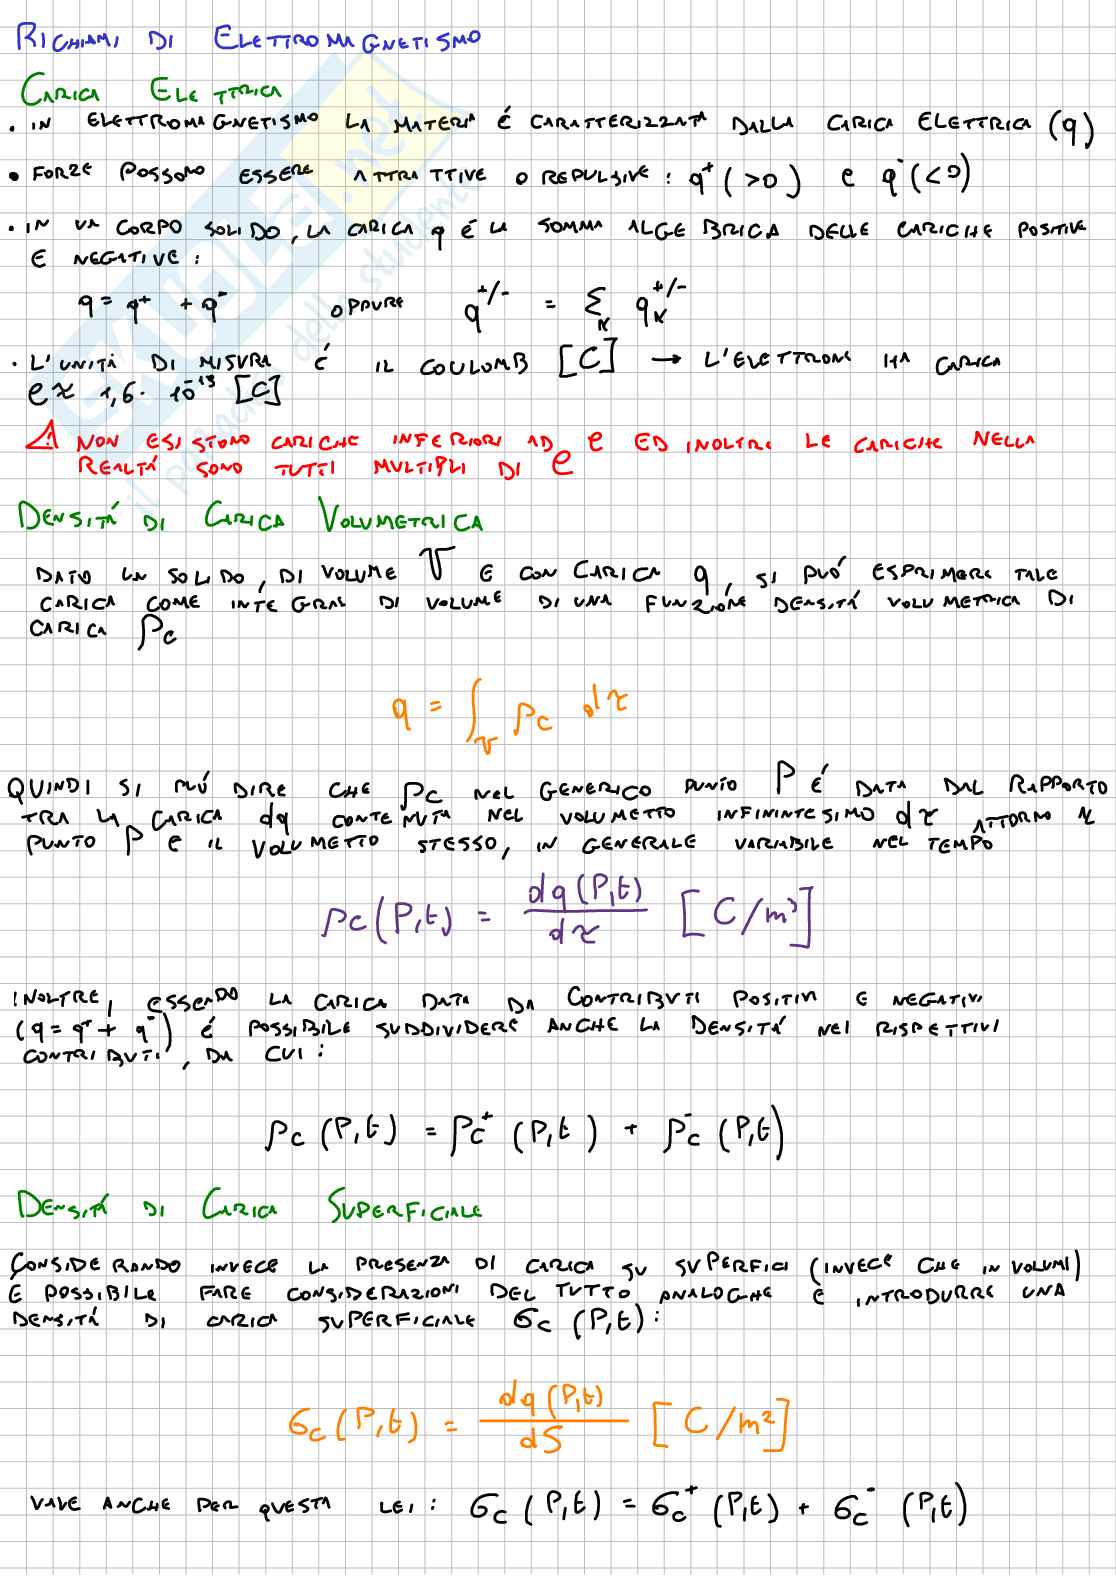 RICHIAMI DI ELETTROMAGNETISMO
CARICA ELETTRICA
• IN ELETTROMAGNETISMO LA MATERIA É CARATTERIZZATA DALLA CARICA ELETTRICA (q)
• FORZE POSSONO ESSERE ATTRATTIVE O REPULSIVE: q⁺(>0) e q⁻(<0)
• IN UN CORPO SOLIDO, LA CARICA q É LA SOMMA ALGEBRICA DELLE CARICHE POSITIVE
E NEGATIVE:
q = q⁺ + q⁻ OPPURE q^{+/-} = Σ_K q_K^{+/-}
• L'UNITÀ DI MISURA É IL COULOMB [C] → L'ELETTRONE HA CARICA
e ≈ 1,6 · 10⁻¹⁹ [C]
⚠ NON ESISTONO CARICHE INFERIORI AD e ED INOLTRE LE CARICHE NELLA
REALTÁ SONO TUTTI MULTIPLI DI e
DENSITÁ DI CARICA VOLUMETRICA
DATO UN SOLIDO, DI VOLUME V E CON CARICA q, SI PUÓ ESPRIMERE TALE
CARICA COME INTEGRAL DI VOLUME DI UNA FUNZIONE DENSITÁ VOLUMETRICA DI
CARICA ρc
q = ∫_V ρc dτ
QUINDI SI PUÓ DIRE CHE ρc NEL GENERICO PUNTO P É DATA DAL RAPPORTO
TRA LA CARICA dq CONTENUTA NEL VOLUMETTO INFININTESIMO dτ ATTORNO AL
PUNTO P E IL VOLUMETTO STESSO, IN GENERALE VARIABILE NEL TEMPO
ρc(P,t) = dq(P,t)/dτ [C/m³]
INOLTRE, ESSENDO LA CARICA DATA DA CONTRIBUTI POSITIVI E NEGATIVI
(q = q⁺ + q⁻) É POSSIBILE SUDDIVIDERE ANCHE LA DENSITÁ NEI RISPETTIVI
CONTRIBUTI, DA CUI:
ρc(P,t) = ρc⁺(P,t) + ρc⁻(P,t)
DENSITÁ DI CARICA SUPERFICIALE
CONSIDERANDO INVECE LA PRESENZA DI CARICA SU SUPERFICI (INVECE CHE IN VOLUMI)
É POSSIBILE FARE CONSIDERAZIONI DEL TUTTO ANALOGHE E INTRODURRE UNA
DENSITÁ DI CARICA SUPERFICIALE σc(P,t):
σc(P,t) = dq(P,t)/dS [C/m²]
VALE ANCHE PER QUESTA LEI: σc(P,t) = σc⁺(P,t) + σc⁻(P,t)
SKUOLA.net
il paradiso dello studente